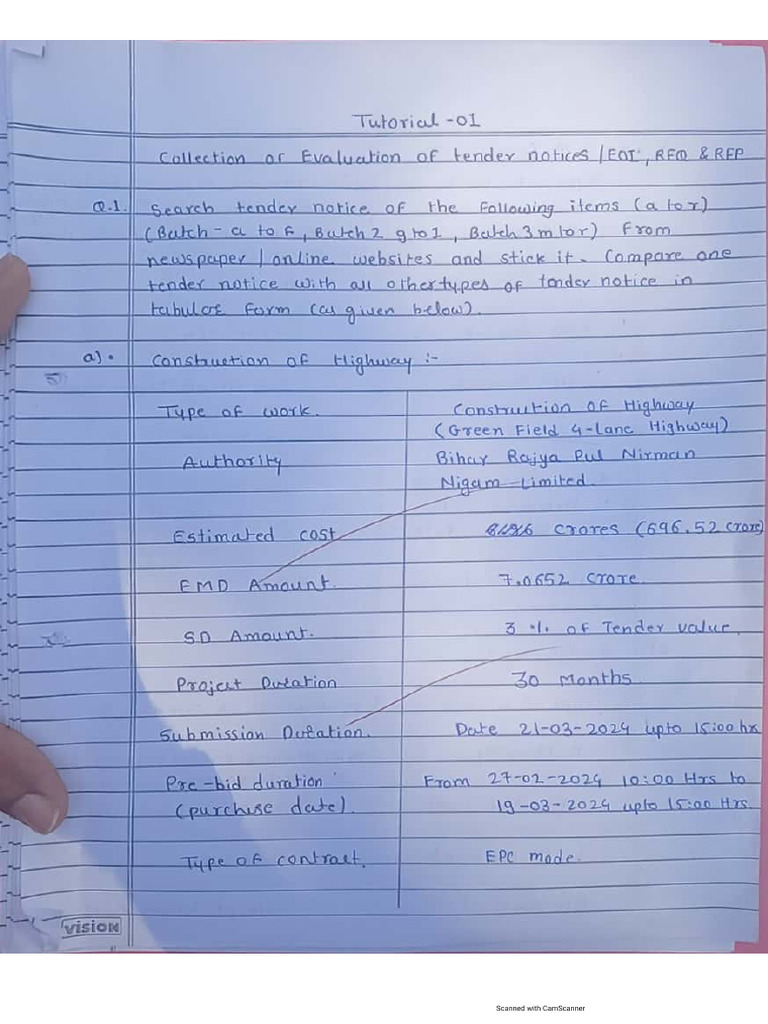 Tutorial - 01
Collection or Evaluation of tender notices / EOI, RFQ & RFP
Q.1. Search tender notice of the following items (a to r)
(Batch - a to f, Batch 2 g to l, Batch 3 m to r) From
newspaper / online websites and stick it. Compare one
tender notice with all other types of tender notice in
tabular form (as given below).
a). Construction of Highway :-
Type of work. Construction of Highway
(Green Field 4-lane Highway)
Authority Bihar Rajya Pul Nirman
Nigam Limited.
Estimated cost crores (696.52 crore)
EMD Amount. 7.0652 crore.
SD Amount. 3 % of Tender value.
Project Duration 30 Months
Submission Duration. Date 21-03-2024 upto 15:00 hrs
Pre-bid duration From 27-02-2024 10:00 Hrs to
(purchise date). 19-03-2024 upto 15:00 Hrs.
Type of contract. EPC mode.
VISION
Scanned with CamScanner